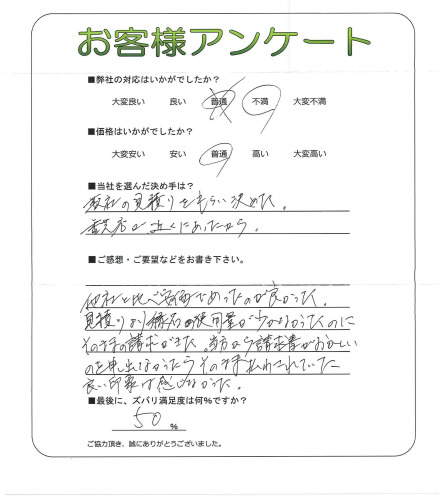 お客様アンケート
■弊社の対応はいかがでしたか?
大変良い 良い 普通 不満 大変不満
■価格はいかがでしたか?
大変安い 安い 普通 高い 大変高い
■当社を選んだ決め手は?
数社の見積りをもらい決めた。
店が近くにあったから。
■ご感想・ご要望などをお書き下さい。
他社と比べ安価であったのが良かった。
見積りより縁石の使用量が少なかったのに
そのままの請求がきた。当方から請求書がおかしい
のを申し出なかったらそのまま払わされていた
良い印象は感じなかった。
■最後に、ズバリ満足度は何%ですか?
50%
ご協力頂き、誠にありがとうございました。